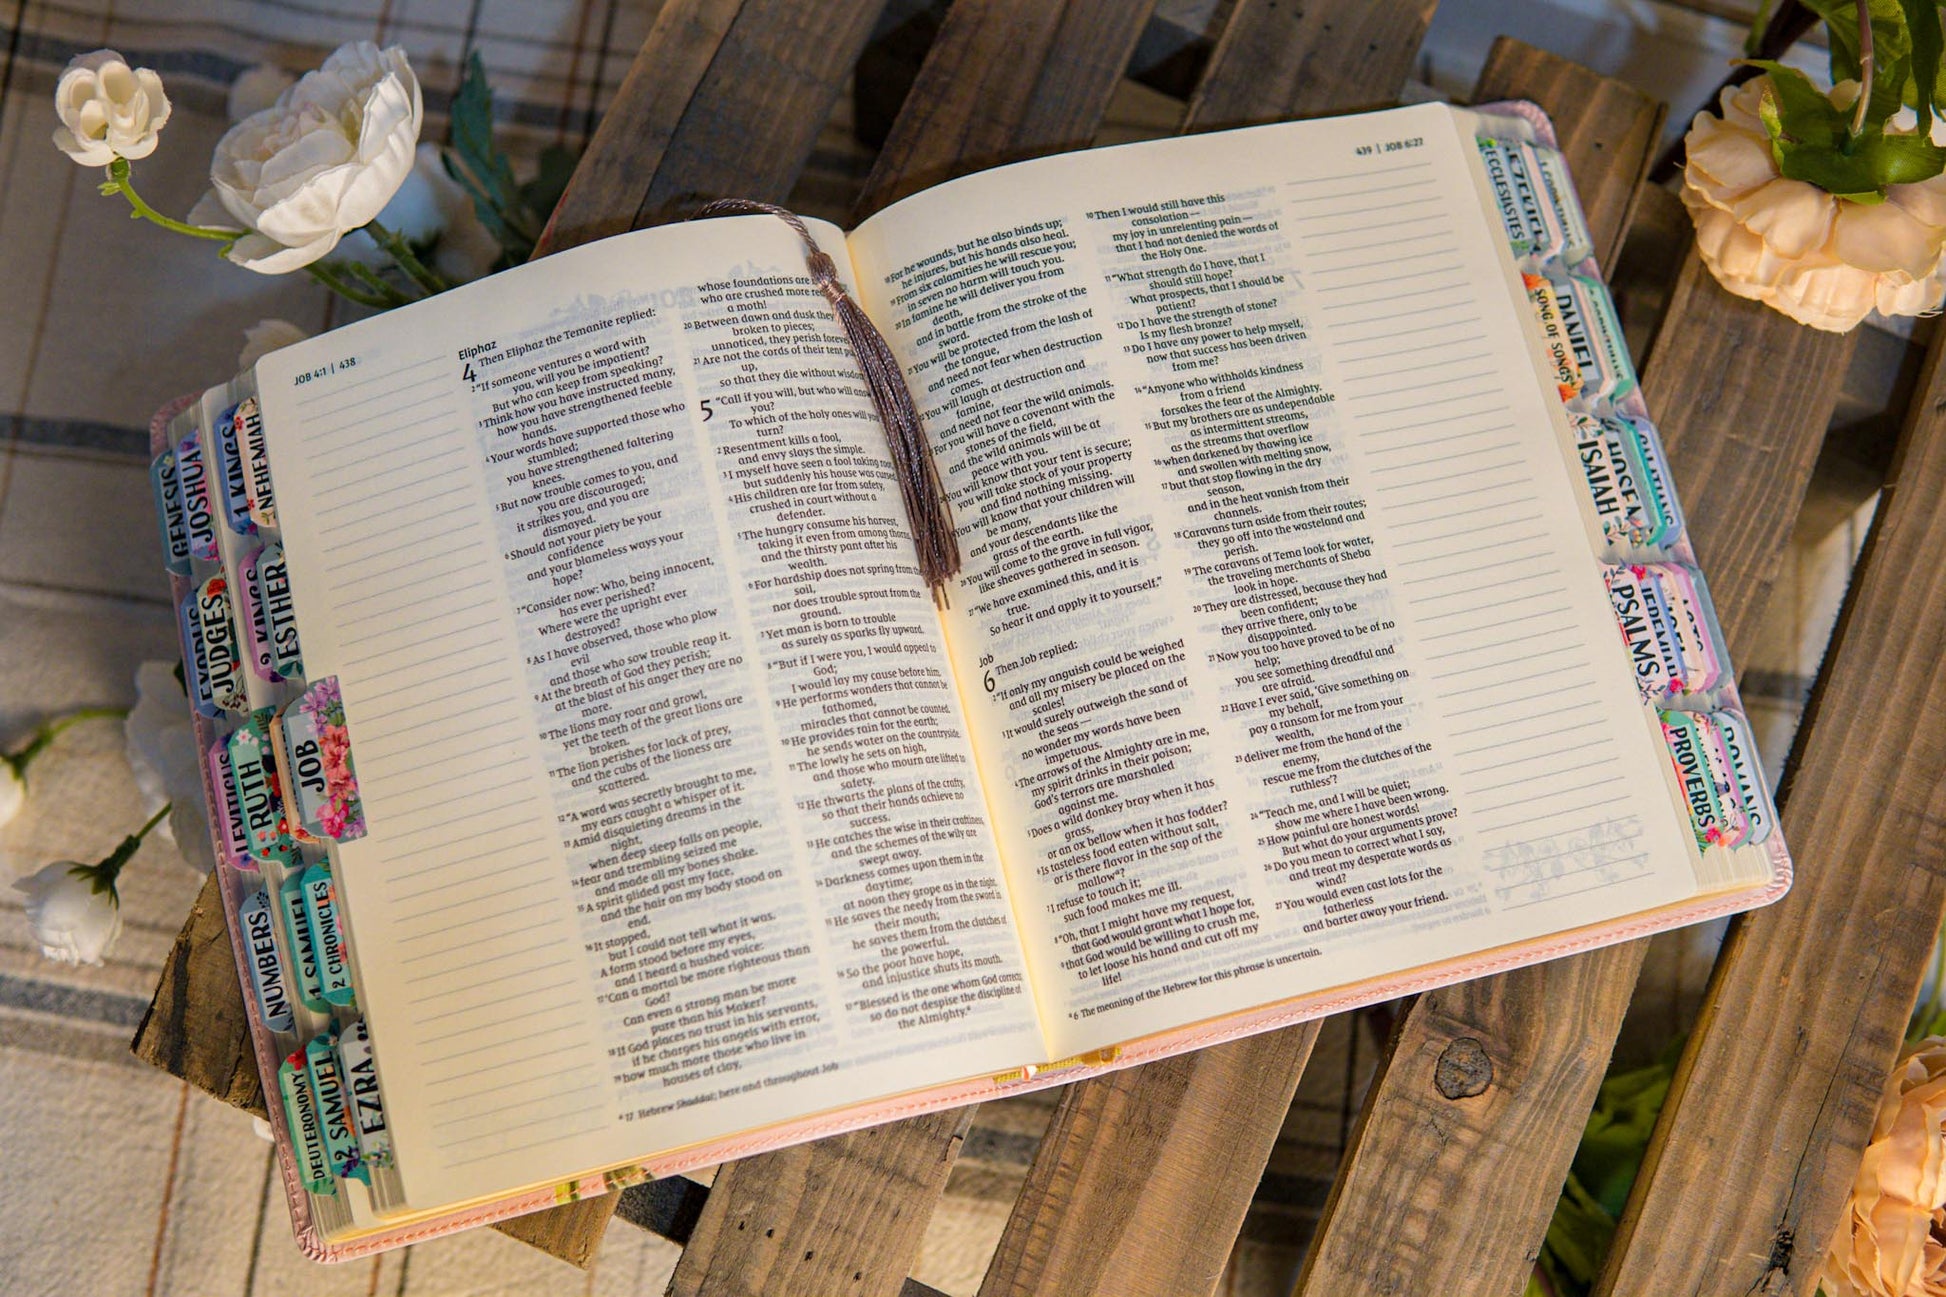 JOB 4:1 | 438
Eliphaz
4 Then Eliphaz the Temanite replied:
2 "If someone ventures a word with
you, will you be impatient?
But who can keep from speaking?
3 Think how you have instructed many,
how you have strengthened feeble
hands.
4 Your words have supported those who
stumbled;
you have strengthened faltering
knees.
5 But now trouble comes to you, and
you are discouraged;
it strikes you, and you are
dismayed.
6 Should not your piety be your
confidence
and your blameless ways your
hope?
7 "Consider now: Who, being innocent,
has ever perished?
Where were the upright ever
destroyed?
8 As I have observed, those who plow
evil
and those who sow trouble reap it.
9 At the breath of God they perish;
at the blast of his anger they are no
more.
10 The lions may roar and growl,
yet the teeth of the great lions are
broken.
11 The lion perishes for lack of prey,
and the cubs of the lioness are
scattered.
12 "A word was secretly brought to me,
my ears caught a whisper of it.
13 Amid disquieting dreams in the
night,
when deep sleep falls on people,
14 fear and trembling seized me
and made all my bones shake.
15 A spirit glided past my face,
and the hair on my body stood on
end.
16 It stopped,
but I could not tell what it was.
A form stood before my eyes,
and I heard a hushed voice:
17 'Can a mortal be more righteous than
God?
Can even a strong man be more
pure than his Maker?
18 If God places no trust in his servants,
if he charges his angels with error,
19 how much more those who live in
houses of clay,
whose foundations are
who are crushed more
a moth!
20 Between dawn and dusk they
broken to pieces;
unnoticed, they perish
21 Are not the cords of their tent
up,
so that they die without
5 "Call if you will, but who will
you?
To which of the holy ones will
turn?
2 Resentment kills a fool,
and envy slays the simple.
3 I myself have seen a fool taking
but suddenly his house was
4 His children are far from safety,
crushed in court without a
defender.
5 The hungry consume his harvest,
taking it even from among
and the thirsty pant after his
wealth.
6 For hardship does not spring from
soil,
nor does trouble sprout from the
ground.
7 Yet man is born to trouble
as surely as sparks fly upward.
8 "But if I were you, I would appeal to
God;
I would lay my cause before him.
9 He performs wonders that cannot be
fathomed,
miracles that cannot be counted.
10 He provides rain for the earth;
he sends water on the countryside.
11 The lowly he sets on high,
and those who mourn are lifted to
safety.
12 He thwarts the plans of the crafty,
so that their hands achieve no
success.
13 He catches the wise in their craftiness,
and the schemes of the wily are
swept away.
14 Darkness comes upon them in the
daytime;
at noon they grope as in the night.
15 He saves the needy from the sword in
their mouth;
he saves them from the clutches of
the powerful.
16 So the poor have hope,
and injustice shuts its mouth.
17 "Blessed is the one whom God corrects;
so do not despise the discipline of
the Almighty.a
a 17 Hebrew Shaddai; here and throughout Job
439 | JOB 6:27
18 For he wounds, but he also binds up;
he injures, but his hands also heal.
19 From six calamities he will rescue you;
in seven no harm will touch you.
20 In famine he will deliver you from
death,
and in battle from the stroke of the
sword.
21 You will be protected from the lash of
the tongue,
and need not fear when destruction
comes.
22 You will laugh at destruction and
famine,
and need not fear the wild animals.
23 For you will have a covenant with the
stones of the field,
and the wild animals will be at
peace with you.
24 You will know that your tent is secure;
you will take stock of your property
and find nothing missing.
25 You will know that your children will
be many,
and your descendants like the
grass of the earth.
26 You will come to the grave in full vigor,
like sheaves gathered in season.
27 "We have examined this, and it is
true.
So hear it and apply it to yourself."
Job
6 Then Job replied:
2 "If only my anguish could be weighed
and all my misery be placed on the
scales!
3 It would surely outweigh the sand of
the seas—
no wonder my words have been
impetuous.
4 The arrows of the Almighty are in me,
my spirit drinks in their poison;
God's terrors are marshaled
against me.
5 Does a wild donkey bray when it has
grass,
or an ox bellow when it has fodder?
6 Is tasteless food eaten without salt,
or is there flavor in the sap of the
mallowa?
7 I refuse to touch it;
such food makes me ill.
8 "Oh, that I might have my request,
that God would grant what I hope for,
9 that God would be willing to crush me,
to let loose his hand and cut off my
life!
10 Then I would still have this
consolation—
my joy in unrelenting pain—
that I had not denied the words of
the Holy One.
11 "What strength do I have, that I
should still hope?
What prospects, that I should be
patient?
12 Do I have the strength of stone?
Is my flesh bronze?
13 Do I have any power to help myself,
now that success has been driven
from me?
14 "Anyone who withholds kindness
from a friend
forsakes the fear of the Almighty.
15 But my brothers are as undependable
as intermittent streams,
as the streams that overflow
16 when darkened by thawing ice
and swollen with melting snow,
17 but that stop flowing in the dry
season,
and in the heat vanish from their
channels.
18 Caravans turn aside from their routes;
they go off into the wasteland and
perish.
19 The caravans of Tema look for water,
the traveling merchants of Sheba
look in hope.
20 They are distressed, because they had
been confident;
they arrive there, only to be
disappointed.
21 Now you too have proved to be of no
help;
you see something dreadful and
are afraid.
22 Have I ever said, 'Give something on
my behalf,
pay a ransom for me from your
wealth,
23 deliver me from the hand of the
enemy,
rescue me from the clutches of the
ruthless'?
24 "Teach me, and I will be quiet;
show me where I have been wrong.
25 How painful are honest words!
But what do your arguments prove?
26 Do you mean to correct what I say,
and treat my desperate words as
wind?
27 You would even cast lots for the
fatherless
and barter away your friend.
a 6 The meaning of the Hebrew for this phrase is uncertain.
GENESIS
JOSHUA
1 KINGS
NEHEMIAH
EXODUS
JUDGES
2 KINGS
ESTHER
LEVITICUS
RUTH
JOB
NUMBERS
1 SAMUEL
2 CHRONICLES
DEUTERONOMY
2 SAMUEL
EZRA
ECCLESIASTES
EZEKIEL
SONG OF SONGS
DANIEL
ISAIAH
HOSEA
PSALMS
JEREMIAH
PROVERBS
ROMANS